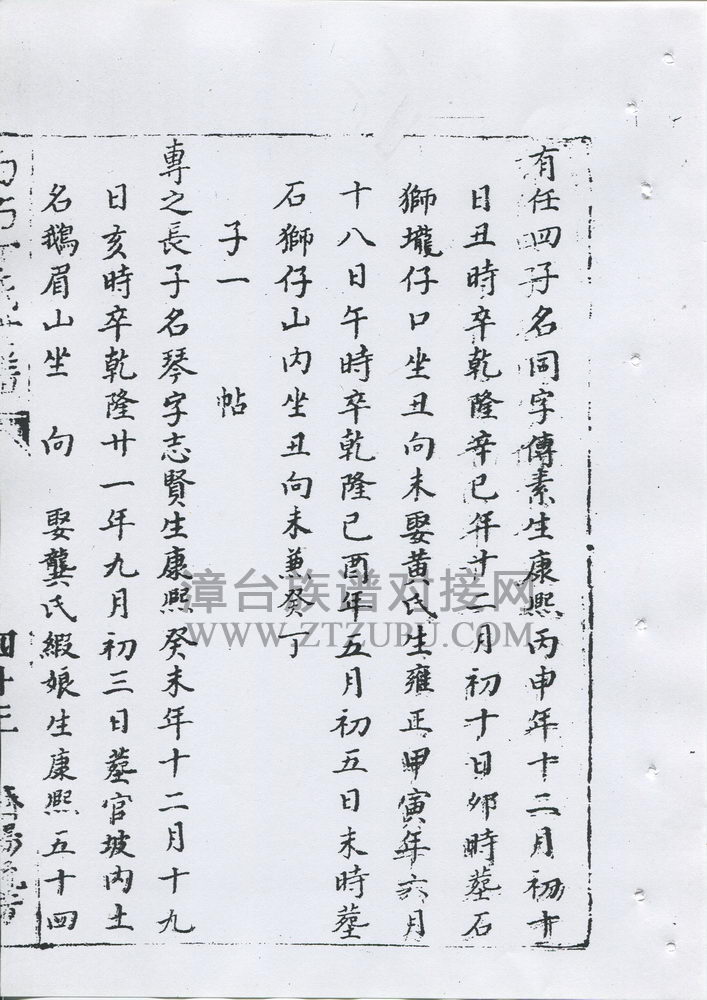 有任四子名同字傳素生康熙丙申年十二月初十
日丑時卒乾隆辛巳年廿二月初十日卯時墓石
獅壠仔口坐丑向未娶黄氏生雍正甲寅年六月
十八日午時卒乾隆己酉年五月初五日未時墓
石獅仔山内坐丑向未兼癸丁
子一 帖
專之長子名琴字志賢生康熙癸未年十二月十九
日亥時卒乾隆廿一年九月初三日墓官坡内土
名鵝眉山坐 向 娶龔氏緞娘生康熙五十四
四十三
漳台族谱对接网
WWW.ZTZUPU.COM